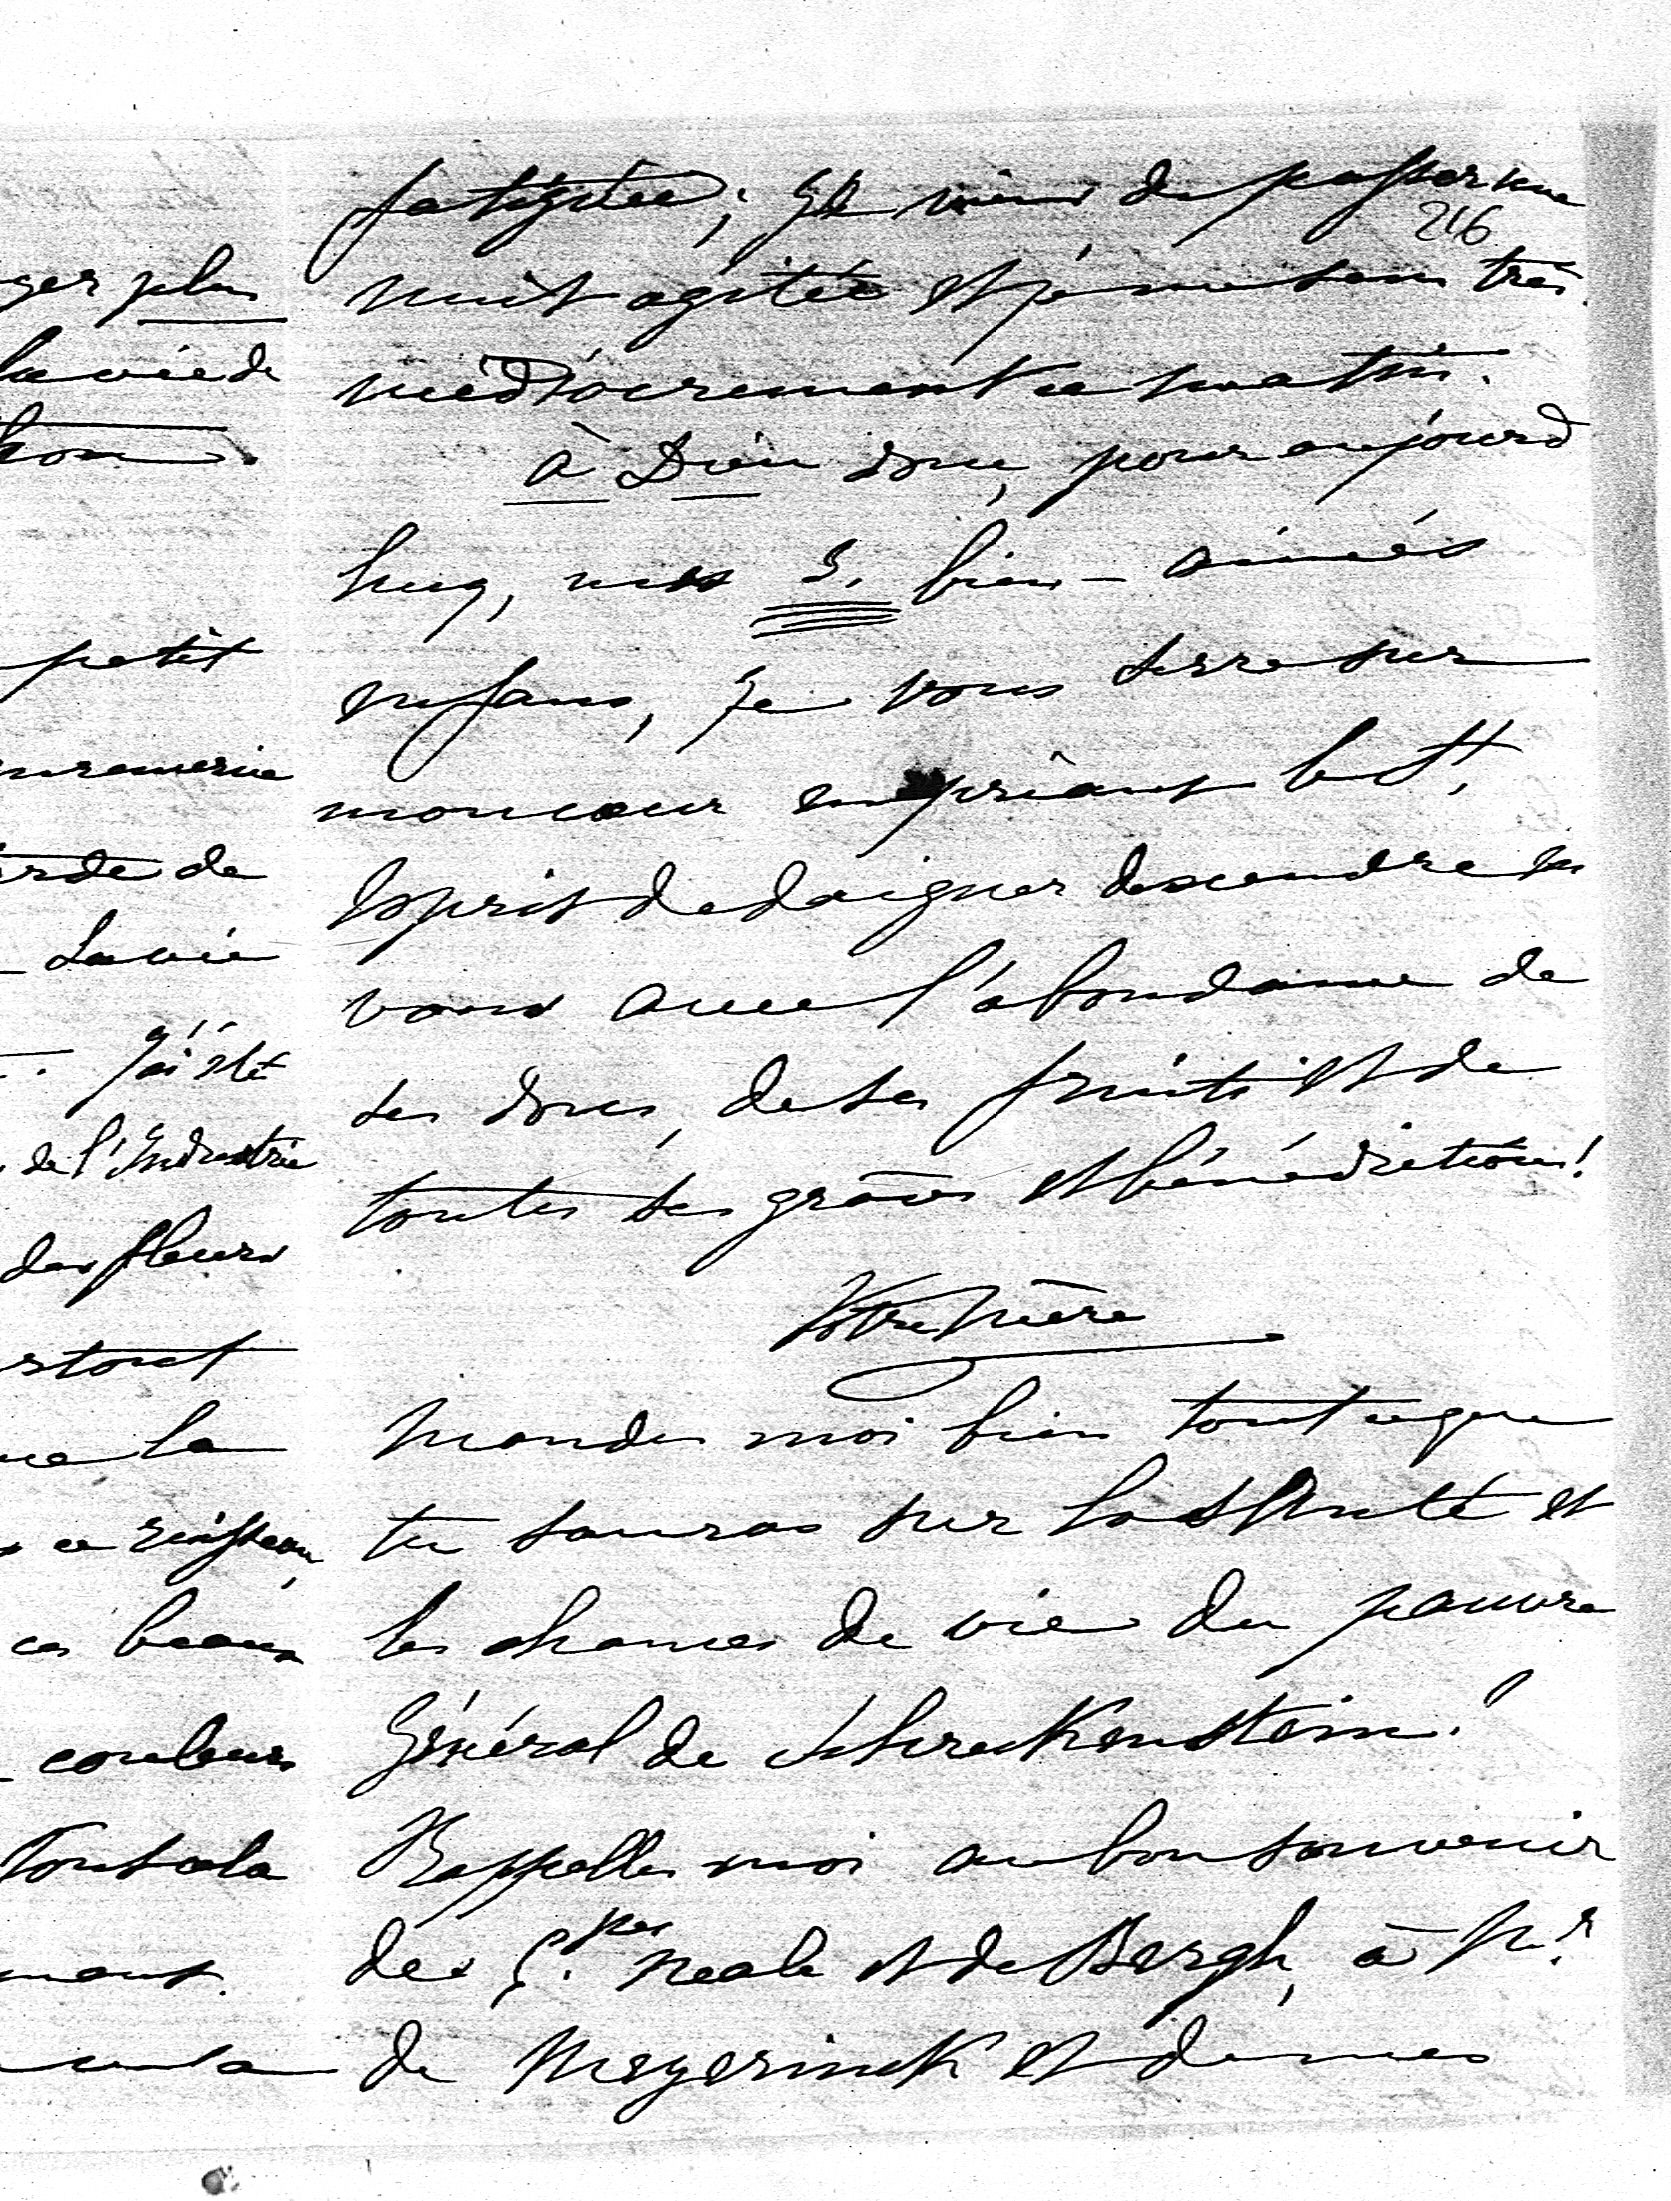 fatiguée; Je viens de passer une
216
nuit agitée et je me sens très
médiocrement ce matin.
à Dieu donc, pour aujourd
huy, mes 3. bien-aimés
enfans, Je vous serre sur
mon cœur en priant le St.
Esprit de daigner descendre sur
vous avec l'abondance de
ses dons, de ses fruits et de
toutes ses grâces et bénédictions!
Votre Mère
Mandes moi bien tout ce que
tu sauras sur la santé et
les chances de vie du pauvre
Général de Schreckenstein!
Rappelles moi au bon souvenir
des C.sses Neale et de Bergh, à Mr
de Meyerinck et de mes
ger plus
la vie de
petit
de
La vie
J'ai été
de l'Industrie
des fleurs
la
ce ruisseau,
ces beaux
couleurs
Tout cela